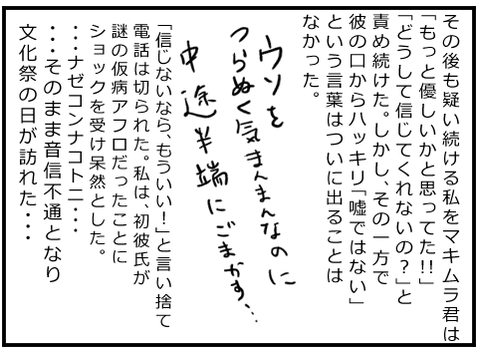 その後も疑い続ける私をマキムラ君は
「もっと優しいかと思ってた!!」
「どうして信じてくれないの?」と
責め続けた。しかし、その一方で
彼の口からハッキリ「嘘ではない」
という言葉はついに出ることは
なかった。
ウソを
つらぬく気まんまんなのに
中途半端にごまかす、、、
「信じないなら、もういい!」と言い捨て
電話は切られた。私は、初彼氏が
謎の仮病アフロだったことに
ショックを受け呆然とした。
・・・ナゼコンナコトニ・・
・・・そのまま音信不通となり
文化祭の日が訪れた・・・